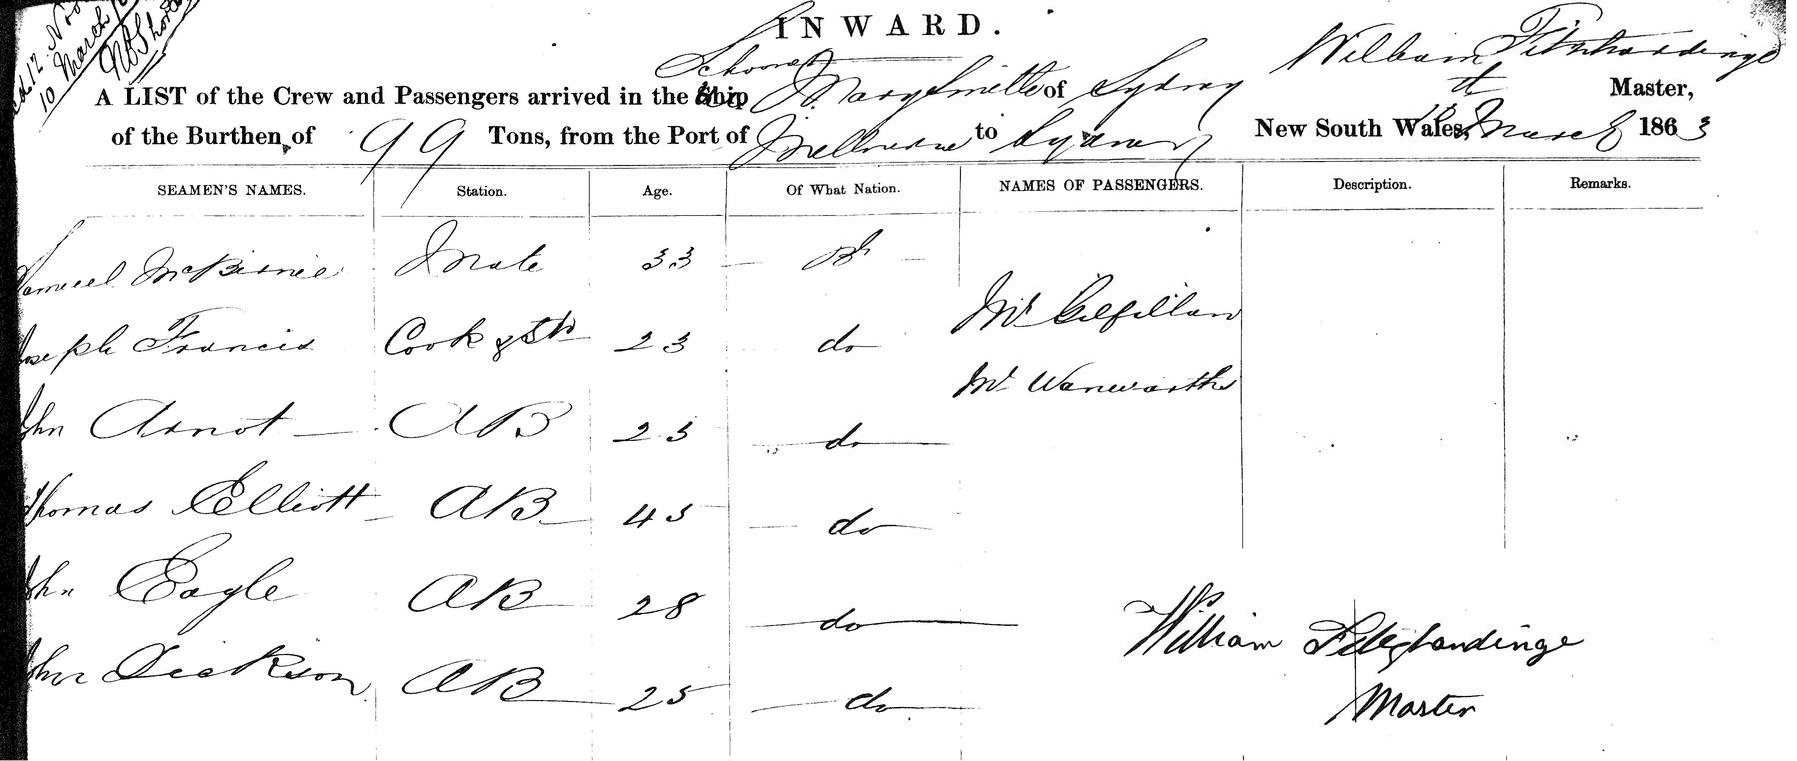 INWARD.
10 March
Schooner William Fitzhardinge
A LIST of the Crew and Passengers arrived in the Ship Mary Smith of Sydney Master,
of the Burthen of 99 Tons, from the Port of Melbourne to Sydney New South Wales, March 1863
SEAMEN'S NAMES. Station. Age. Of What Nation. NAMES OF PASSENGERS. Description. Remarks.
Samuel McBirnie Mate 33 Bh
Mr Gilfillan
Joseph Francis Cook & Std 23 do
Mr Wanwarths
John Arnot AB 23 do
Thomas Elliott AB 45 do
John Eagle AB 28 do
William Fitzhardinge
John Dickson AB 25 do
Master